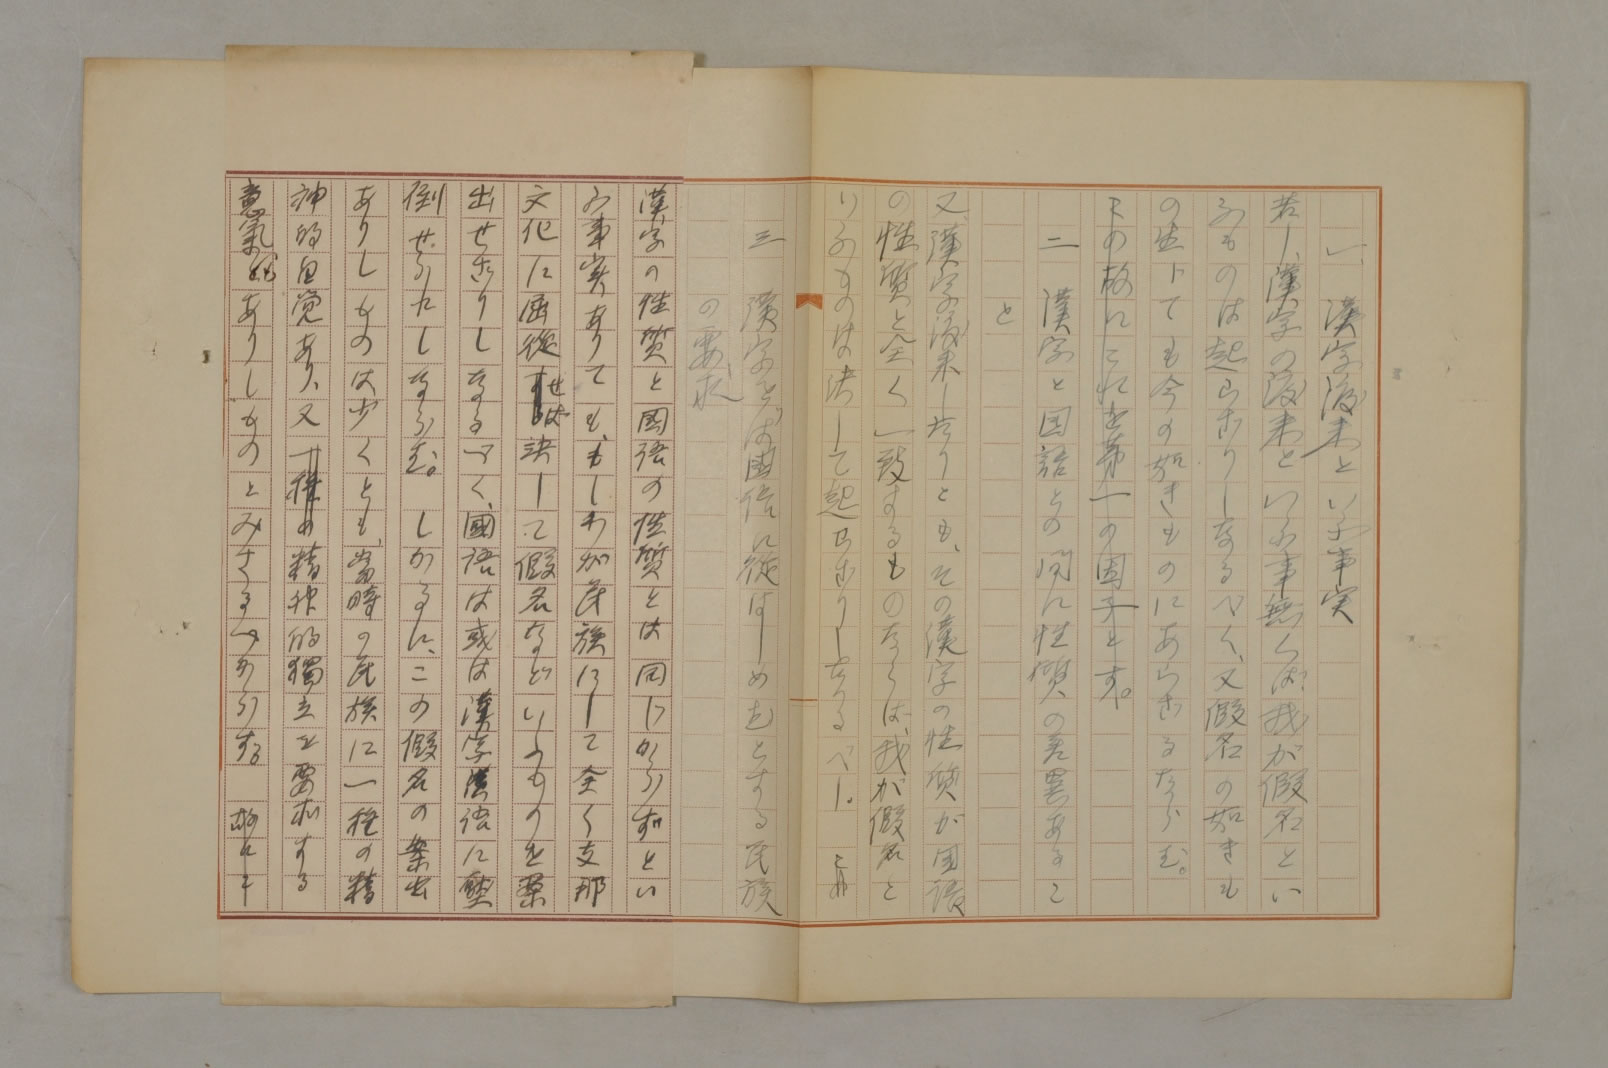 一、漢字渡来といふ事実
若し漢字の渡来といふ事無くば我が假名とい
ふものは起らざりしなるべく、又假名の如きも
の生じても今の如きものにあらざるならむ。
この故にこれを第一の因子とす。
二 漢字と国語との間に性質の差異あるこ
と
又漢字渡来したりとも、その漢字の性質が国語
の性質と全く一致するものならば、我が假名と
いふものは決して起らざりしなるべし。これ
三 漢字をば国語に従はしめむとする民族
の要求
漢字の性質と國語の性質とは同じからずとい
ふ事実ありても、もしわが民族にして全く支那
文化に屈從せば決して假名などいふものを案
出せざりしなるべく、國語は或は漢字漢語に壓
倒せられしならむ。しかるに、この假名の案出
ありしものは少くとも、當時の民族に一種の精
神的自覚あり、又精神的獨立を要求する
意氣ありしものとみざるべからず。故にそ